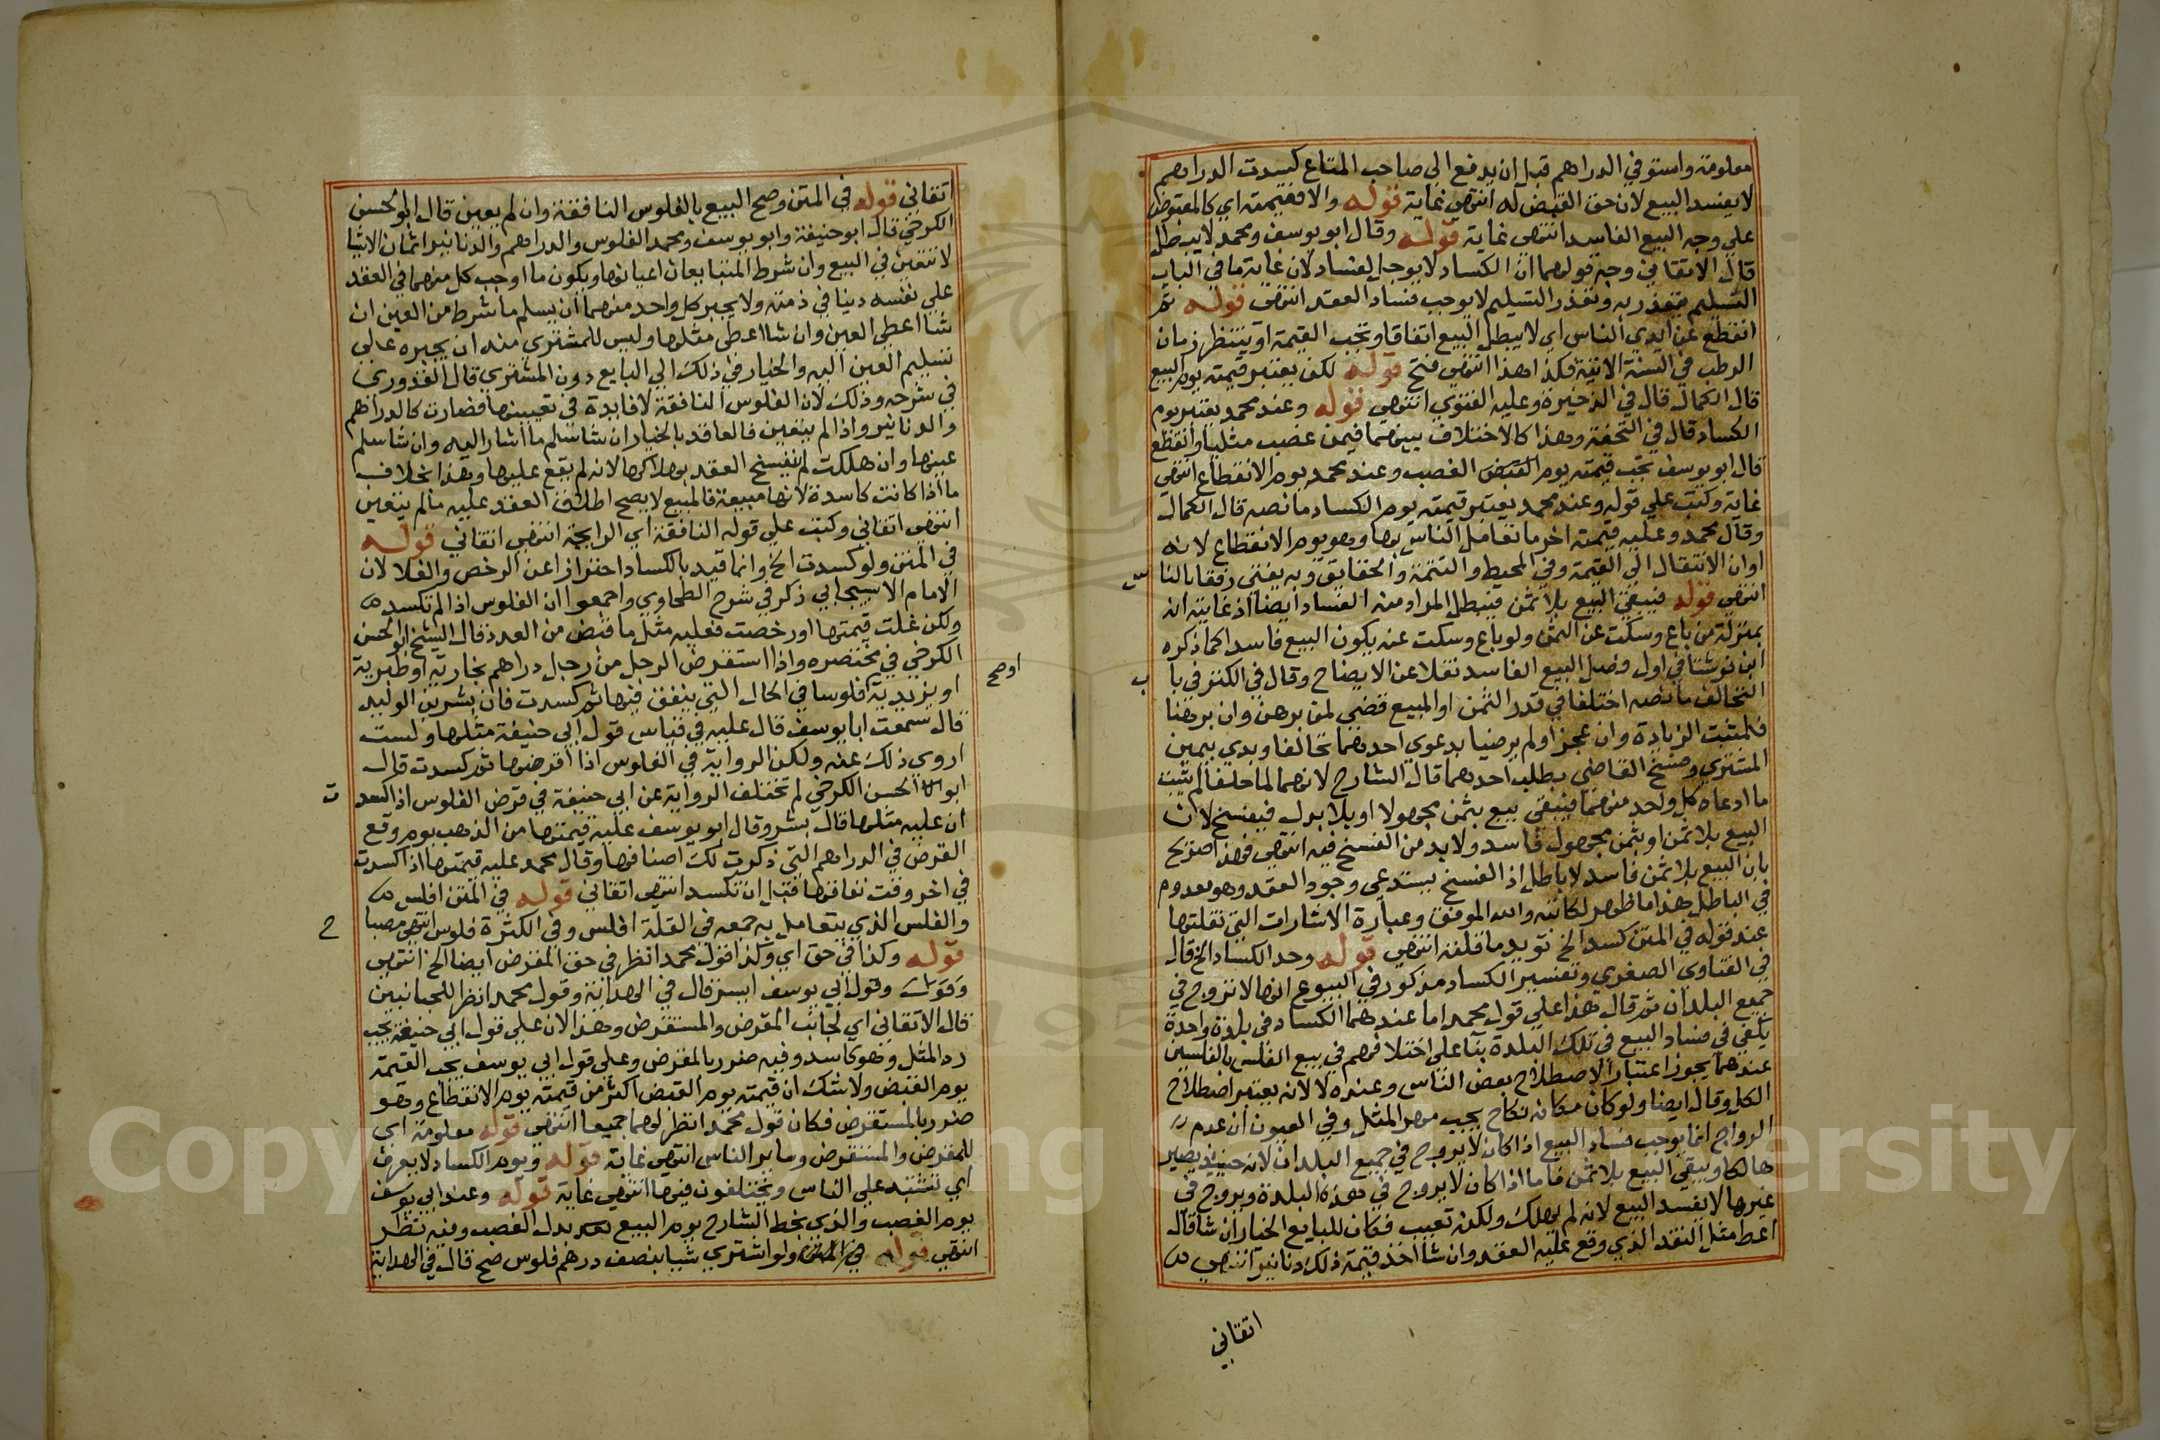 معلومة واستوفي الدراهم قبل ان يدفع الي صاحب المتاع كسدت الدراهم
لا يفسد البيع لان حق القبض له انتهي غاية قوله والا فقيمته اي كالمقبوض
علي وجه البيع الفاسد انتهي غاية قوله وقال ابو يوسف ومحمد لا يبطل
قال الاتقاني وجه قولهما ان الكساد لا يوجب الفساد لان غاية ما في الباب
التسليم متعذر به وتعذر التسليم لا يوجب فساد العقد انتهي قوله ثم
انقطع عن ايدي الناس اي لا يبطل البيع اتفاقا وتجب القيمة او ينتظر زمان
الرطب في السنة الاتية فكذا هذا انتهي فتح قوله لكن يعتبر قيمته يوم البيع
قال الكمال قال في الذخيرة وعليه الفتوي انتهي قوله وعند محمد يعتبر يوم
الكساد قال في التحفة وهذا كالاختلاف بينهما فيمن غصب مثليا وانقطع
قال ابو يوسف تجب قيمته يوم الغصب وعند محمد يوم الانقطاع انتهي
غاية وكتب علي قوله وعند محمد يعتبر قيمته يوم الكساد ما نصه قال الكمال
وقال محمد وعليه قيمته اخر ما تعامل الناس بها وهو يوم الانقطاع لانه
اوان الانتقال الي القيمة وفي المحيط والتتمة والحقايق وبه يفتي رفقا بالنا
انتهي قوله فيبقي البيع بلا ثمن فيبطل المراد منه الفساد ايضا اذ غايته انه
بمنزلة من باع وسكت عن الثمن ولو باع وسكت عنه يكون البيع فاسدا كما ذكره
ابن في اول فصل البيع الفاسد نقلا عن الايضاح وقال في الكنز في با
التخالف ما نصه اختلفا في قدر الثمن او المبيع قضي لمن برهن وان برهنا
فلمثبت الزيادة وان عجزا ولم يرضيا بدعوي احدهما تحالفا وبدي بيمين
المشتري وفسخ القاضي بطلب احدهما قال الشارح لانهما لما حلفا لم يثبت
ما ادعاه كل واحد منهما فيبقي بيع بثمن مجهول او بلا بدل فيفسخ لان
البيع بلا ثمن او بثمن مجهول فاسد ولا بد من الفسخ فيه انتهي فهذا صريح
بان البيع بلا ثمن فاسد لا باطل اذ الفسخ يستدعي وجود العقد وهو معدوم
في الباطل هذا ما ظهر لكاتبه والله الموفق وعبارة الاشارات التي نقلتها
عند قوله في المتن كسد الخ تويد ما قلته انتهي قوله وحد الكساد الخ قال
في الفتاوي الصغري وتفسير الكساد مذكور في البيوع انها لا تروج في
جميع البلدان ثم قال هذا علي قول محمد اما عندهما الكساد في بلدة واحدة
يكفي في فساد البيع في تلك البلدة بنا علي اختلافهم في بيع الفلس بالفلسين
عندهما يجوز اعتبار الاصطلاح بعض الناس وعنده لا لانه يعتبر اصطلاح
الكل وقال ايضا ولو كان مكانه نكاح يجب مهر المثل وفي العيون ان عدم
الرواج انما يوجب فساد البيع اذا كان لا يروج في جميع البلدان لانه حينيذ يصير
هالكا ويبقي البيع بلا ثمن فاما اذا كان لا يروج في هذه البلدة ويروج في
غيرها لا يفسد البيع لانه لم يهلك ولكن تعيب فكان للبايع الخيار ان شا قال
اعط مثل النقد الذي وقع عليه العقد وان شا اخذ قيمة ذلك دنانير انتهي
س
ب
اتقاني
اتقاني قوله في المتن وصح البيع بالفلوس النافقة وان لم يعين قال ابو الحسن
الكرخي قال ابو حنيفة وابو يوسف ومحمد الفلوس والدراهم والدنانير اثمان الاشيا
لا تتعين في البيع وان شرط المتبايعان اعيانها ويكون ما اوجب كل منهما في العقد
علي نفسه دينا في ذمته ولا يجبر كل واحد منهما ان يسلم ما شرط من العين ان
شا اعطي العين وان شا اعطي مثلها وليس للمشتري منه ان يجبره علي
تسليم العين اليه والخيار في ذلك الي البايع دون المشتري قال القدوري
في شرحه وذلك لان الفلوس النافقة لا فايدة في تعيينها فصارت كالدراهم
والدنانير واذا لم يتعين فالعاقد بالخيار ان شا سلم ما اشار اليه وان شا سلم
غيرها وان هلكت لم ينفسخ العقد بهلاكها لانه لم يقع عليها وهذا بخلاف
ما اذا كانت كاسدة لانها مبيعة فالمبيع لا يصح اطلاق العقد عليه ما لم يتعين
انتهي اتقاني وكتب علي قوله النافقة اي الرايجة انتهي اتقاني قوله
في المتن ولو كسدت الخ وانما قيد بالكساد احترازا عن الرخص والغلا لان
الامام الاسبيجابي ذكر في شرح الطحاوي واجمعوا ان الفلوس اذا لم تكسد
ولكن غلت قيمتها او رخصت فعليه مثل ما قبض من العدد قال الشيخ ابو الحسن
الكرخي في مختصره واذا استقرض الرجل من رجل دراهم بخارية او طبرية
او يزيدية او فلوسا في الحال التي ينفق فيها ثم كسدت فان بشر بن الوليد
قال سمعت ابا يوسف قال عليه في قياس قول ابي حنيفة مثلها ولست
اروي ذلك عنه ولكن الرواية في الفلوس اذا اقرضها ثم كسدت قال
ابو الحسن الكرخي لم تختلف الرواية عن ابي حنيفة في قرض الفلوس اذا كسد
ان عليه مثلها قال بشر وقال ابو يوسف عليه قيمتها من الذهب يوم وقع
القرض في الدراهم التي ذكرت لك اصنافها وقال محمد عليه قيمتها اذا كسدت
في اخر وقت نفاقها قبل ان تكسد انتهي اتقاني قوله في المتن افلس
والفلس الذي يتعامل به جمعه في القلة افلس وفي الكثرة فلوس انتهي مصبا
قوله وكذا في حق اي وكذا قول محمد انظر في حق المقرض ايضا الخ انتهي
وقول ابي يوسف ايسر قال في الهداية وقول محمد انظر للجانبين
قال الاتقاني اي لجانب المقرض والمستقرض وهذا لان علي قول ابي حنيفة يجب
رد المثل وهو كاسد وفيه ضرر بالمقرض وعلي قول ابي يوسف يجب القيمة
يوم القبض ولا شك ان قيمته يوم القبض اكثر من قيمته يوم الانقطاع وهو
ضرر بالمستقرض فكان قول محمد انظر لهما جميعا انتهي قوله معلومة اي
للمقرض والمستقرض وساير الناس انتهي غاية قوله ويوم الكساد لا يعرف
اي تشتبه علي الناس ويختلفون فيها انتهي غاية قوله وعند ابي يوسف
يوم الغصب والذي بخط الشارح يوم البيع بدل الغصب وفيه نظر
انتهي قوله في المتن ولو اشتري شيا بنصف درهم فلوس صح قال في الهداية
اوضح
ت
ح
Copy
ng
ersity
195